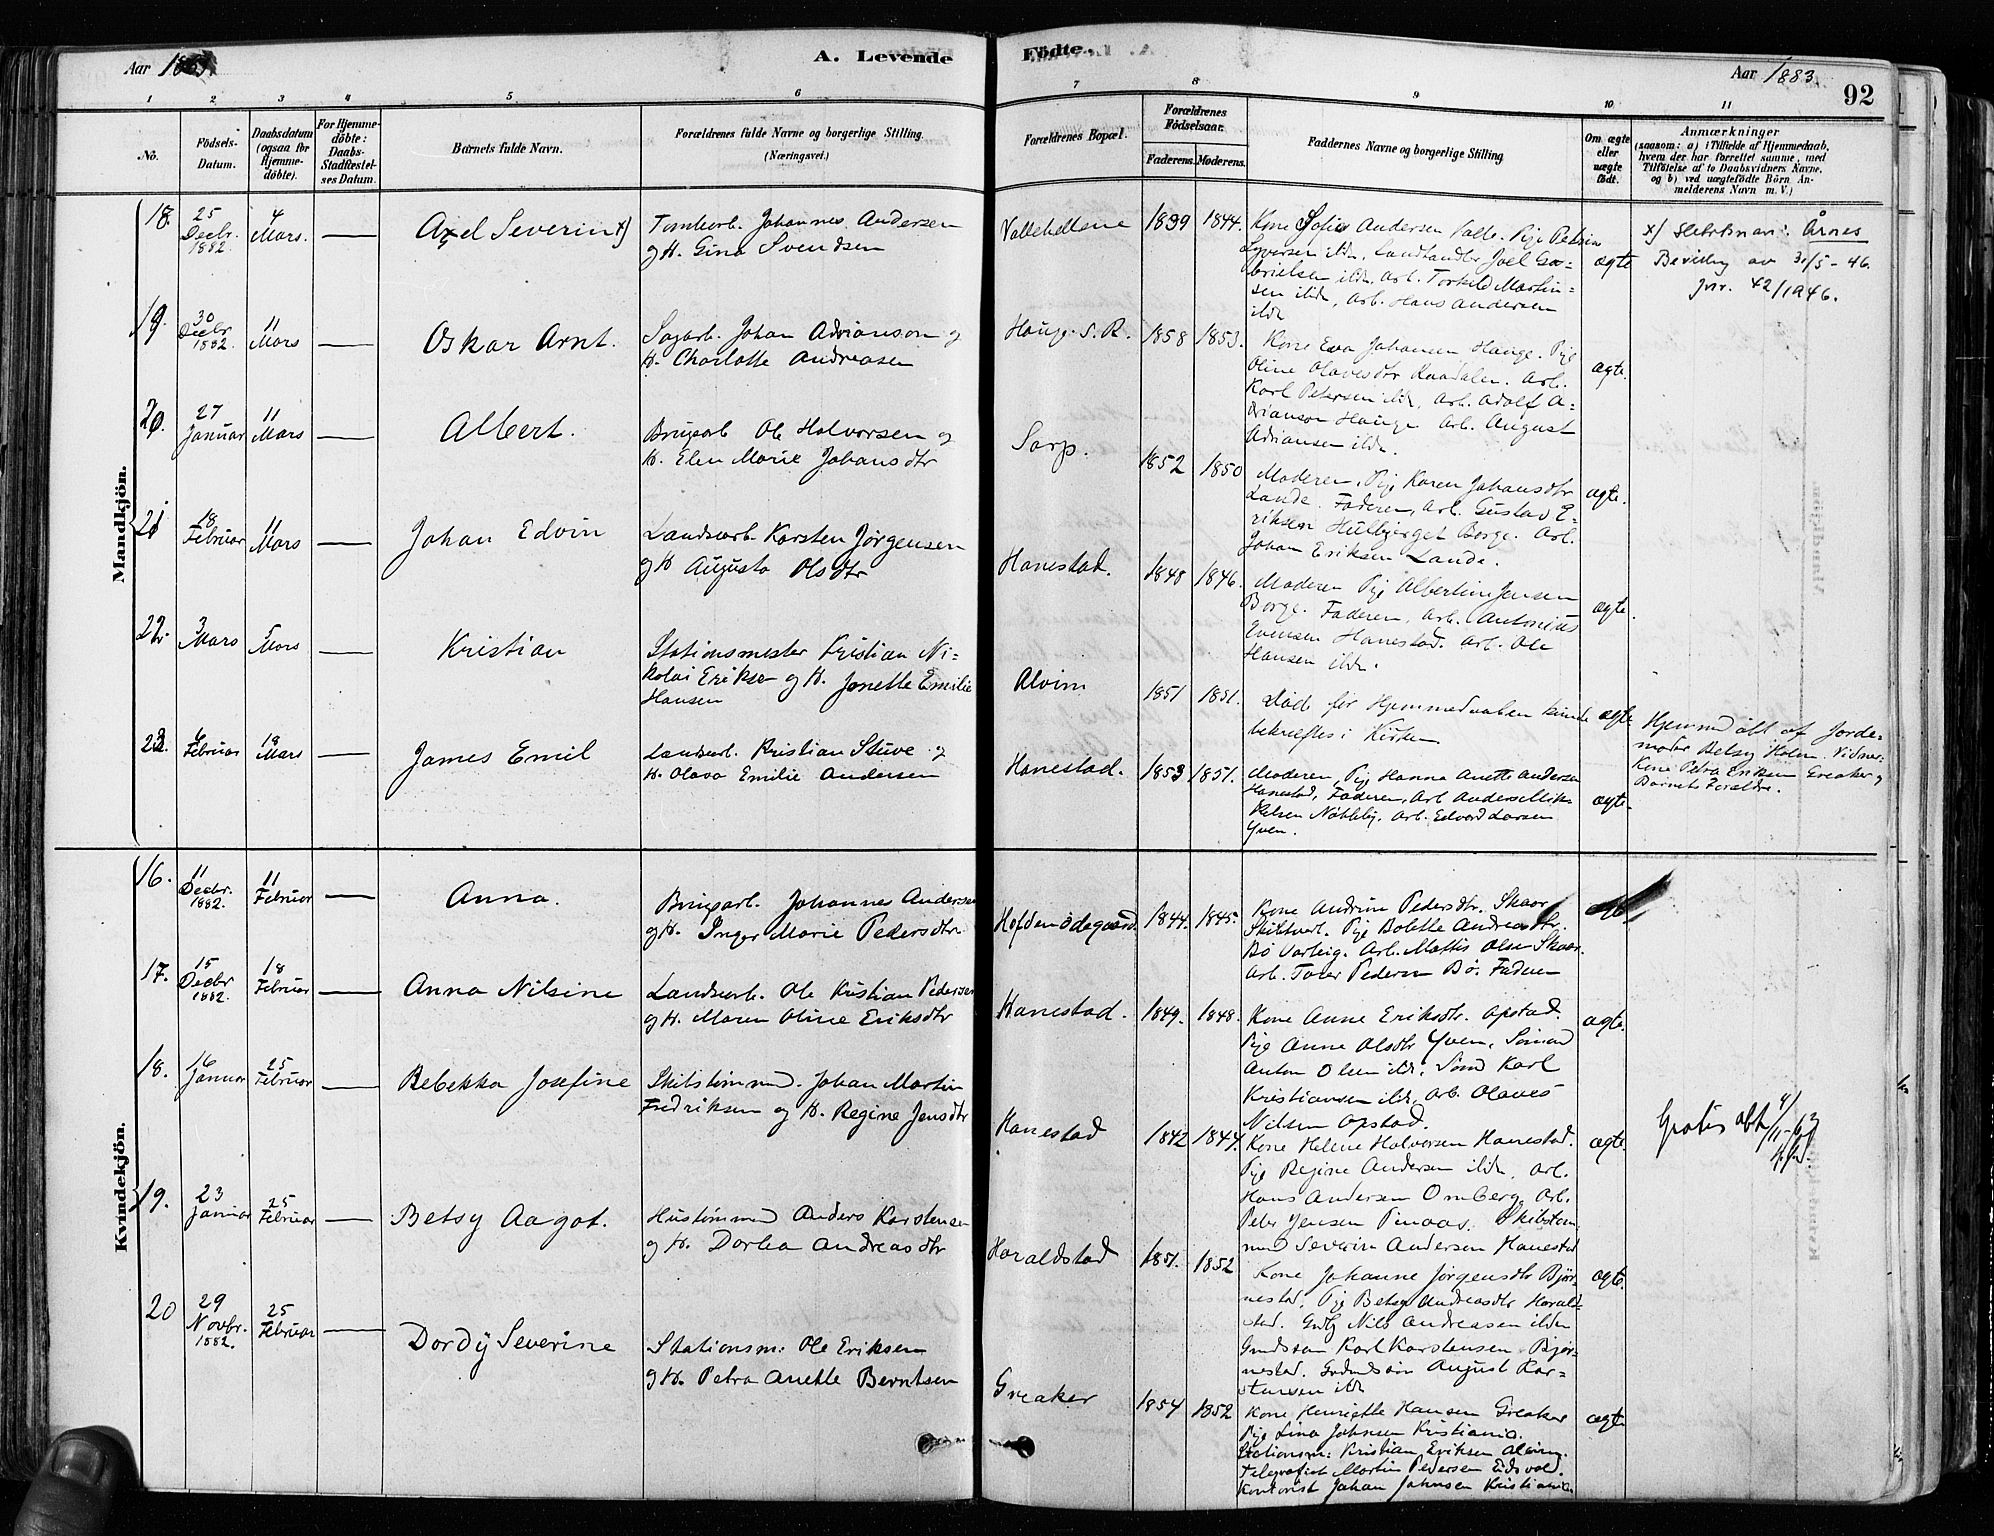 Aar 1883.
A. Levende
Födte.
Aar 1883.
92
1 2 3 4 5 6 7 8 9 10 11
No.
Födsels-Datum.
Daabsdatum (ogsaa for Hjemmedöbte).
For Hjemmedöbte: Daabs-Stadfæstelses Datum.
Barnets fulde Navn.
Forældrenes fulde Navne og borgerlige Stilling. (Næringsvei.)
Forældrenes Bopæl.
Forældrenes Födselsaar.
Faderens. Moderens.
Faddernes Navne og borgerlige Stilling
Om ægte eller uægte født.
Anmærkninger
(saasom: a) i Tilfælde af Hjemmedaab, hvem der har forrettet samme, med Tilföielse af to Daabsvidners Navne, og b) ved uægtefödte Börn Anmelderens Navn m. V.)
Mandkjön.
18. 25 Decbr. 1882 4 Mars. Axel Severin x)
Tomtearb. Johannes Andersen
og H. Gina Svendsen
Vallehellene 1839 1844.
Kone Sofie Andersen Valle. Pige Petrine
Syversen ildr. Landhandler Joel Ga-
brielsen ildr. Arb. Torkild Martin-
sen ildr, Arb. Hans Andersen
ildr
ægte
x) Slektsnavn: Årnes
Bevilling av 31/5 - 46.
jnr. 42/1946.
19. 30 Decbr 1882. 11 Mars Oskar Arnt.
Sagarb. Johan Adrianson og
H. Charlotte Andreasen
Hauge S. R. 1858 1853.
Kone Eva Johansen Hauge. Pige
Oline Olavesdtr Raadalen. Arb.
Karl Petersen ildr, Arb. Adolf A-
drianson Hauge Arb. August
Adriansen ildr.
ægte.
20. 27 Januar 11 Mars Albert.
Brugsarb Ole Halvorsen og
H. Elen Marie Johansdtr
Sarp. 1852 1850
Moderen, Pige Karen Johansdtr
Lande. Faderen, Arb. Gustav E-
riksen Hulbjerget Borge. Arb.
Johan Eriksen Lande.
ægte.
21 18 Februar 11 Mars Johan Edvin
Landsarb. Karsten Jørgensen
og H Augusta Olsdtr
Hanestad. 1848 1846.
Moderen Pige Albertine Jensen
Borge. Faderen, Arb. Antonius
Evensen Hanestad. Arb. Ole
Hansen ildr.
ægte.
22. 3 Mars 5 Mars Kristian
Stationsmester Kristian Ni-
kolai Eriksen og H. Jonette Emilie
Hansen
Alvim 1851 1851.
Død før Hjemmedaaben kunde
bekræftes i Kirken
ægte
Hjemmedøbt af Jorde-
moder Betsy Holm. Vidner:
Kone Petra Eriksen Greaker og
Barnets Forældre.
23. 6 Februar 18 Mars James Emil
Landsarb. Kristian Stuve og
H. Olava Emilie Andersen
Hanestad. 1853 1851.
Moderen, Pige Hanna Anette Andersen
Hanestad, Faderen, Arb Anders Mik-
kelsen Nabbely, Arb. Edvard Larsen
Yven.
ægte.
Kvindekjön.
16. 11 Decbr. 1882. 11 Februar Anna.
Brugsarb. Johannes Andersen
og H. Inger Marie Pedersdtr
Hafdenødegaard. 1844. 1845.
Kone Andrine Pedersdtr. Skaar
Skiltverk. Pige Bolette Andreasdtr.
Bø Varteig. Arb. Mattis Olsen Skaar.
Arb. Toler Pedersen Bø. Faderen
17. 15 Decbr 1882. 18 Februar Anna Nilsine
Landsarb. Ole Kristian Pedersen
og H. Maren Oline Eriksdtr
Hanestad. 1849. 1848.
Kone Anne Eriksdtr. Opstad.
Pige Anne Olsdtr Yven, Sømand
Anton Olsen ildr. Sømd Karl
Kristiansen ildr, Arb. Olaves
Nilsen Opstad.
ægte.
18. 16 Januar 25 Februar Rebekka Josefine
Skibstømmerm. Johan Martin
Fredriksen og H. Regine Jensdtr
Hanestad 1842 1844.
Kone Helene Halvorsen Hanestad.
Pige Regine Andersen ildr, Arb.
Hans Andersen Omberg, Arb.
Peter Jensen Tinaas. Skibstøm-
mermd Severin Andersen Hanestad
ægte.
Gratis att
19. 23 Januar 25 Februar Betsy Aagot.
Hustømmermd Anders Karstensen
og H. Dorthea Andreasdtr
Haraldstad 1851. 1852
Kone Johanne Jørgensdtr Bjør-
nestad, Pige Betsy Andreasdtr Harald-
stad. Gmd Nils Andreasen ildr
Grndssøn Karl Karstensen Bjør-
nestad. Grdmdssøn August Kar-
stensen ildr
ægte.
20 29 Novbr. 1882. 25 Februar Dordy Severine
Stationsm: Ole Eriksen
og H. Petra Anette Berntsen
Greaker 1854 1852
Kone Henriette Hansen Greaker
Pige Lina Johnsen Kristiania.
Stationsm: Kristian Eriksen Alvim.
Telegrafist Martin Pedersen Eidsvold.
Kontorist Johan Johnsen Kristiania
ægte